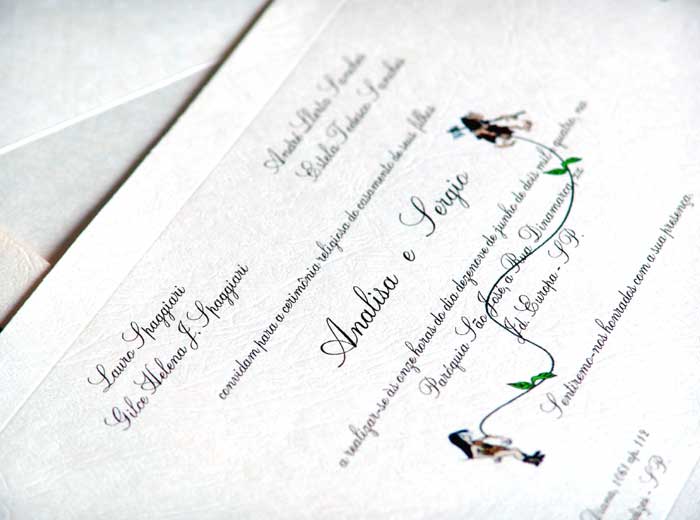 Lauro Spaggiari
Gilce Helena J. Spaggiari
Estela Tedesco
convidam para a cerimônia religiosa do casamento de seus filhos
Analisa e Sergio
a realizar-se às onze horas do dia dezenove de junho de dois mil e quatro, na
Paróquia São José, a Rua Dinamarca,
Jd. Europa - SP.
Sentiremo-nos honrados com a sua presença
1161 apt. 112
- SP.